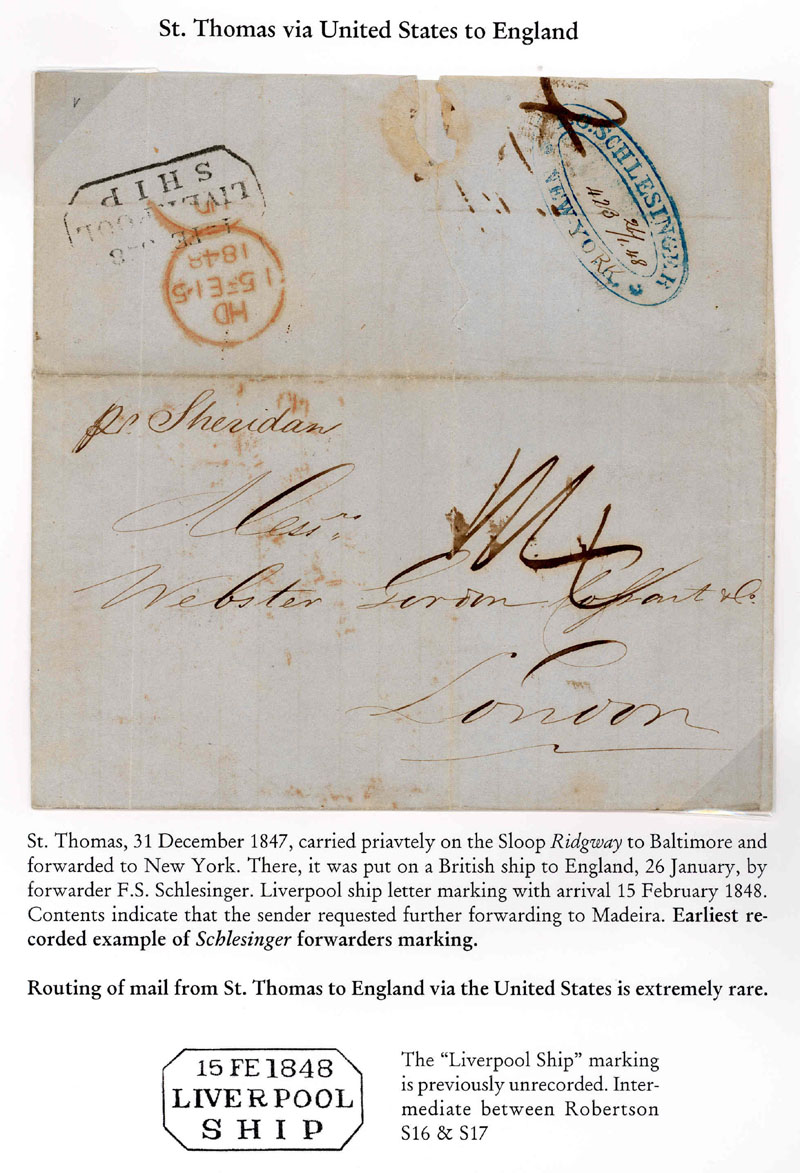 St. Thomas via United States to England
SHIP
LIVERPOOL
15 FE 1848
HD
15 FE 15
1848
F.S. SCHLESINGER
NEW YORK.
428 26/1.48
pr Sheridan
Messrs
Webster Gordon Cossart & Co.
London
St. Thomas, 31 December 1847, carried priavtely on the Sloop Ridgway to Baltimore and
forwarded to New York. There, it was put on a British ship to England, 26 January, by
forwarder F.S. Schlesinger. Liverpool ship letter marking with arrival 15 February 1848.
Contents indicate that the sender requested further forwarding to Madeira. Earliest re-
corded example of Schlesinger forwarders marking.
Routing of mail from St. Thomas to England via the United States is extremely rare.
15 FE 1848
LIVERPOOL
SHIP
The “Liverpool Ship” marking
is previously unrecorded. Inter-
mediate between Robertson
S16 & S17